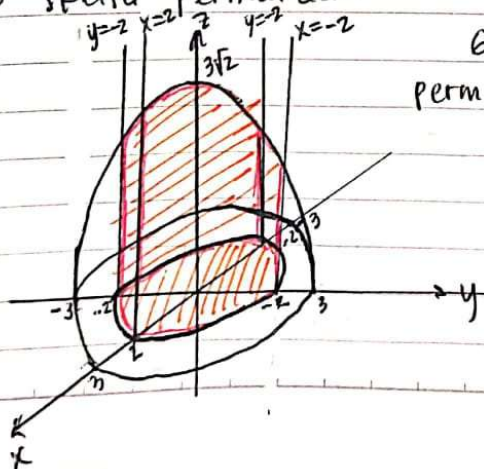 y=-2 x=2 z y=-2 x=-2
3√2
perm
3
-2
-3 -2 -2 3 y
2
x